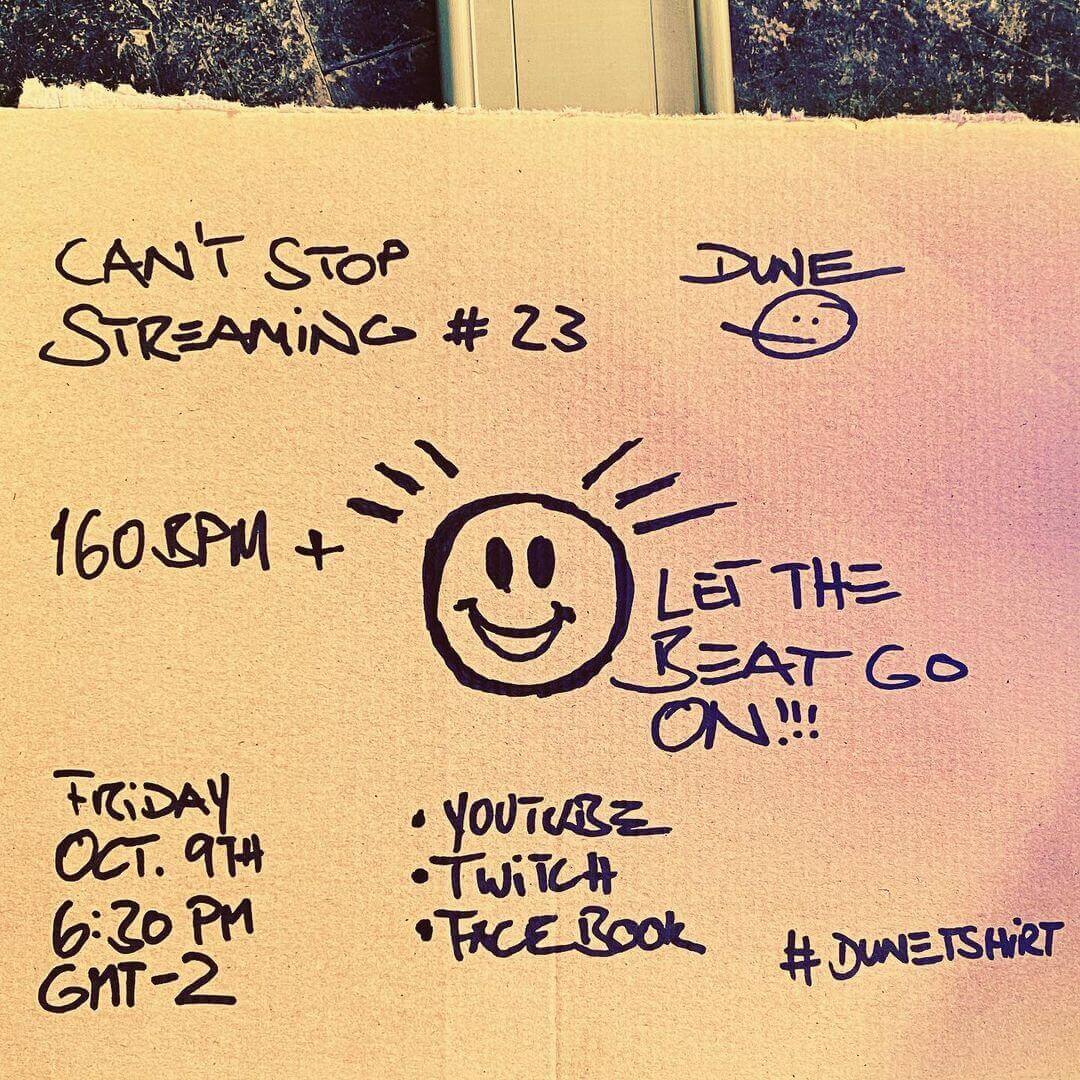 CAN'T STOP
STREAMING # 23
DUNE
160 BPM +
LET THE
BEAT GO
ON!!!
FRIDAY
OCT. 9TH
6:30 PM
GMT-2
• YOUTUBE
• TWITCH
• FACEBOOK
#DUNETSHIRT